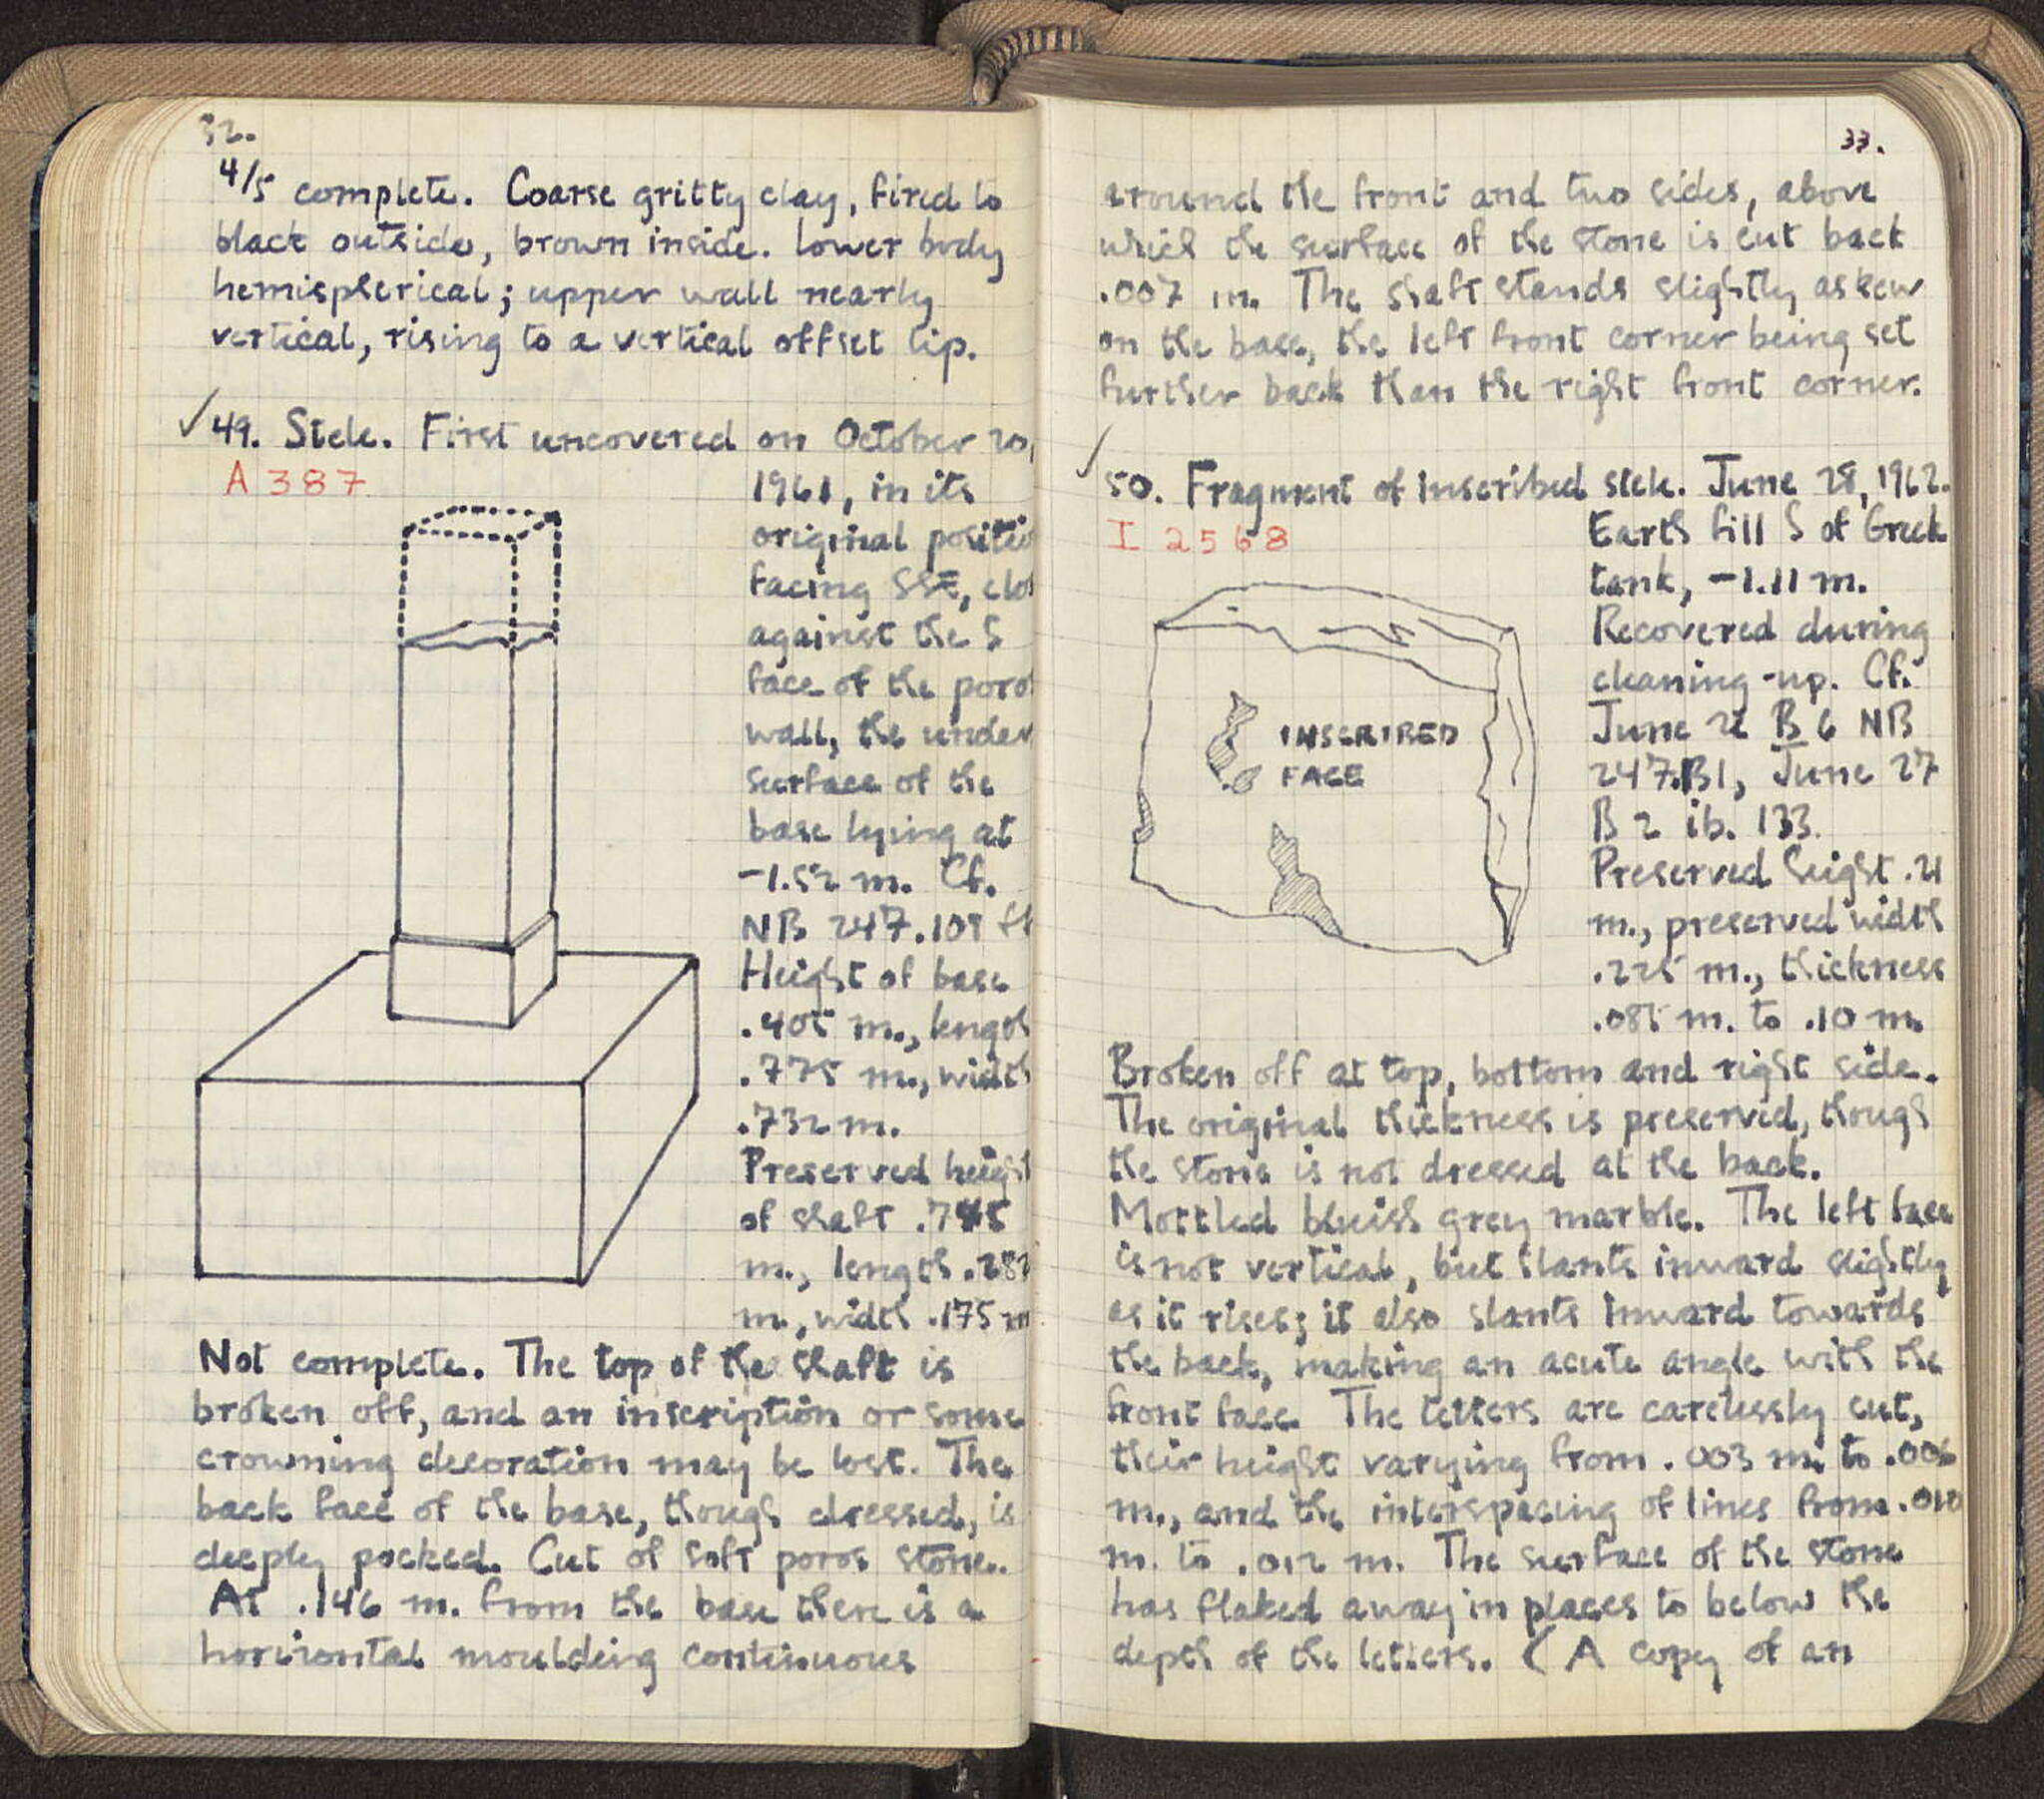 32.
4/5 complete. Coarse gritty clay, fired to
black outside, brown inside. Lower body
hemispherical; upper wall nearly
vertical, rising to a vertical offset lip.
49. Stele. First uncovered on October 20,
A 387
1961, in its
original positio
facing SSE, clo
against the S
face of the poro
wall, the under
surface of the
base lying at
-1.52 m. Cf.
NB 247.109
Height of base
.405 m., length
.775 m., width
.732 m.
Preserved height
of shaft .745
m., length .282
m., width .175 m
Not complete. The top of the shaft is
broken off, and an inscription or some
crowning decoration may be lost. The
back face of the base, though dressed, is
deeply pocked. Cut of soft poros stone.
At .146 m. from the base there is a
horizontal moulding continuous
33.
around the front and two sides, above
which the surface of the stone is cut back
.007 m. The shaft stands slightly askew
on the base, the left front corner being set
further back than the right front corner.
50. Fragment of inscribed stele. June 28, 1962.
I 2568
Earth fill S of Greek
tank, -1.11 m.
Recovered during
cleaning-up. Cf.
June 22 B 6 NB
247.131, June 27
B 2 ib. 133.
Preserved height .21
m., preserved width
.225 m., thickness
.085 m. to .10 m.
INSCRIBED
FACE
Broken off at top, bottom and right side.
The original thickness is preserved, though
the stone is not dressed at the back.
Mottled bluish grey marble. The left face
is not vertical, but slants inward slightly
as it rises; it also slants inward towards
the back, making an acute angle with the
front face. The letters are carelessly cut,
their height varying from .003 m. to .006
m., and the interspacing of lines from .010
m. to .012 m. The surface of the stone
has flaked away in places to below the
depth of the letters. (A copy of an